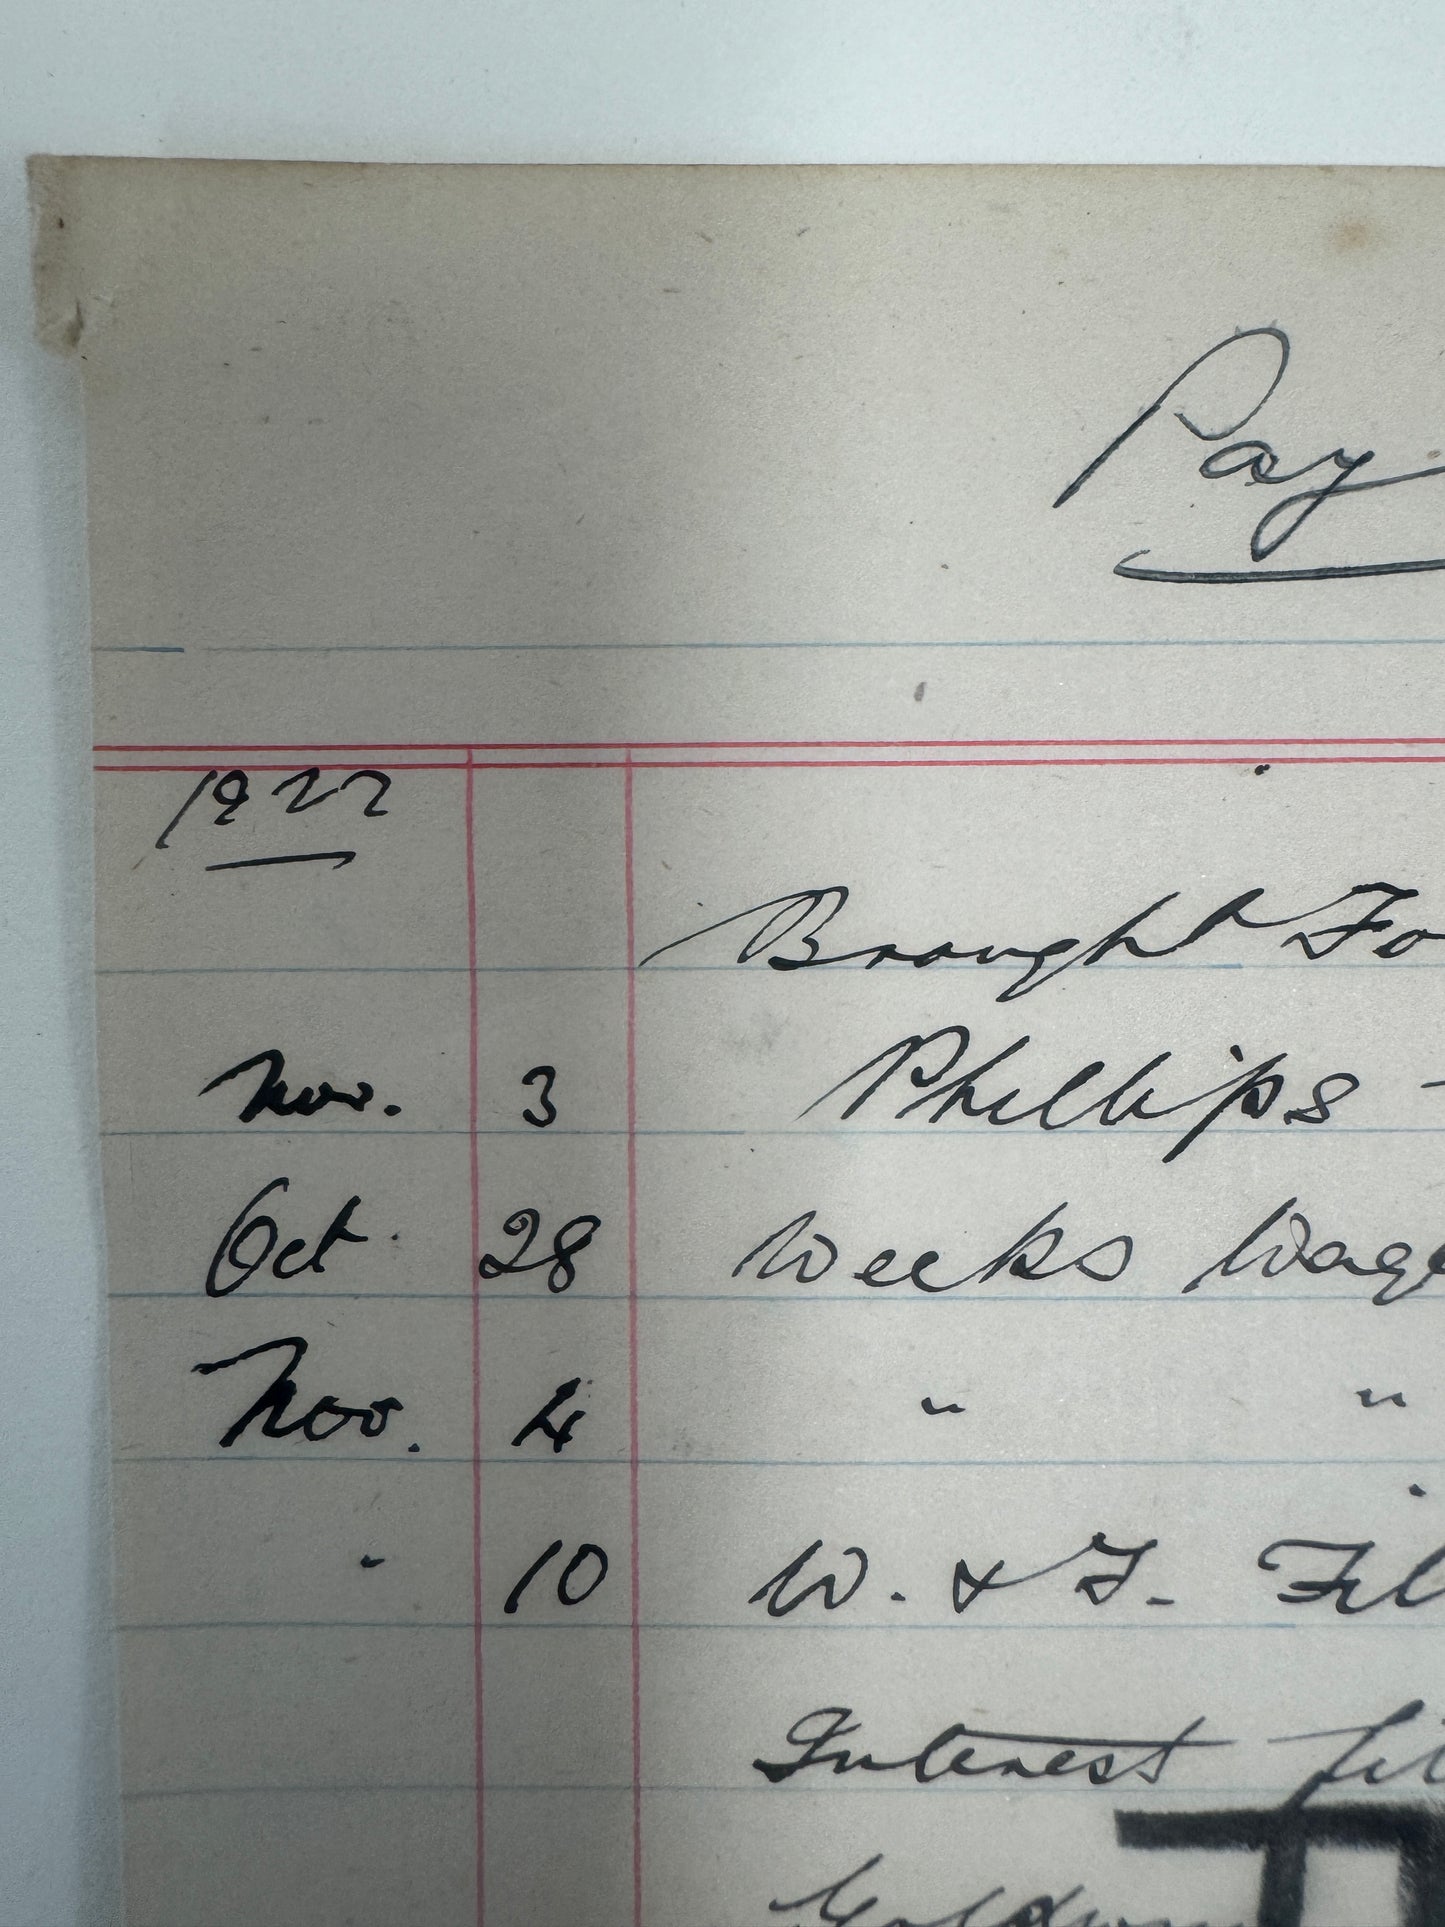 Pay
1922
Brought Fo
Nov. 3 Phillips -
Oct. 28 Weeks Wage
Nov. 4 " "
" 10 W. & F. Fil
Interest